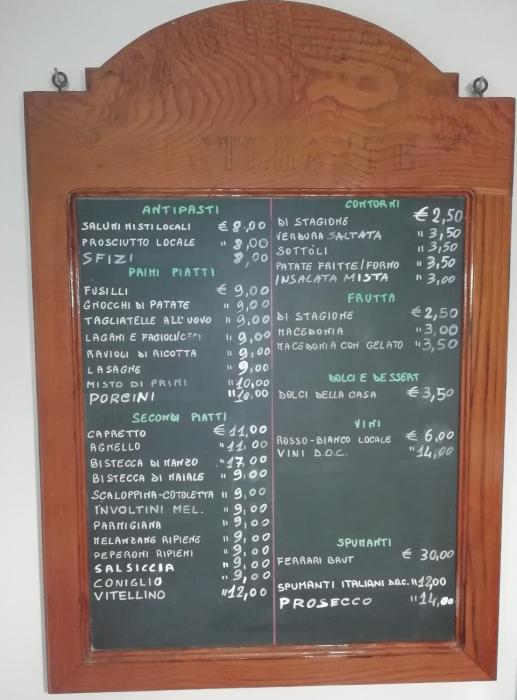 RISTORANTE
ANTIPASTI
SALUMI MISTI LOCALI € 8,00
PROSCIUTTO LOCALE " 8,00
SFIZI 8,00
PRIMI PIATTI
FUSILLI € 9,00
GNOCCHI DI PATATE " 9,00
TAGLIATELLE ALL'UOVO " 9,00
LAGANI E FAGIOLI/CECI " 9,00
RAVIOLI DI RICOTTA " 9,00
LASAGNE " 9,00
MISTO DI PRIMI " 10,00
PORCINI " 10,00
SECONDI PIATTI
CAPRETTO € 11,00
AGNELLO " 11,00
BISTECCA DI MANZO " 17,00
BISTECCA DI MAIALE " 9,00
SCALOPPINA-COTOLETTA " 9,00
INVOLTINI MEL. " 9,00
PARMIGIANA " 9,00
MELANZANE RIPIENE " 9,00
PEPERONI RIPIENI " 9,00
SALSICCIA " 9,00
CONIGLIO " 9,00
VITELLINO " 12,00
CONTORNI
DI STAGIONE € 2,50
VERDURA SALTATA " 3,50
SOTTÓLI " 3,50
PATATE FRITTE/FORNO " 3,50
INSALATA MISTA " 3,00
FRUTTA
DI STAGIONE € 2,50
MACEDONIA " 3,00
MACEDONIA CON GELATO " 3,50
DOLCI E DESSERT
DOLCI DELLA CASA € 3,50
VINI
ROSSO-BIANCO LOCALE € 6,00
VINI D.O.C. " 14,00
SPUMANTI
FERRARI BRUT € 30,00
SPUMANTI ITALIANI D.O.C. " 12,00
PROSECCO " 14,00